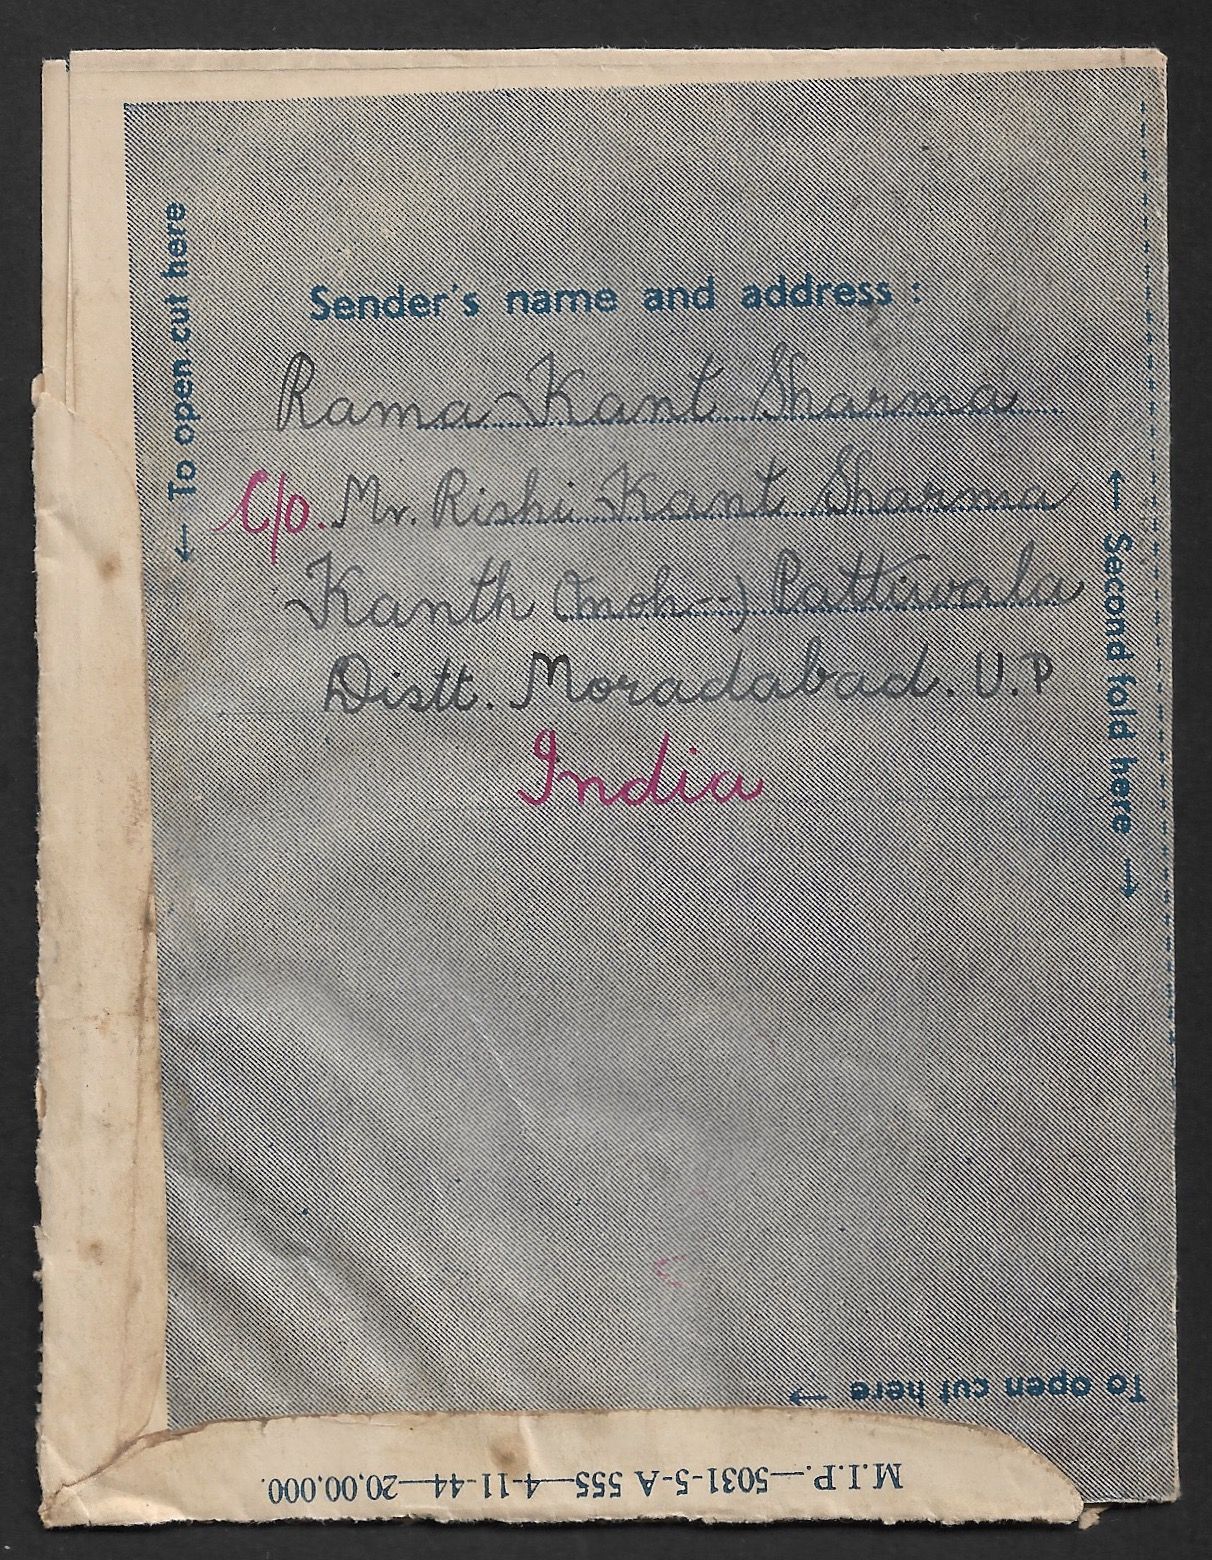 ← To open cut here
Sender's name and address :
Rama Kant Sharma
C/o. Mr. Rishi Kant Sharma
Kanth (moh--) Pattiwala
Distt. Moradabad. U.P
India
← Second fold here →
To open cut here →
M.I.P.—5031-5-A 555—4-11-44—20,00,000.